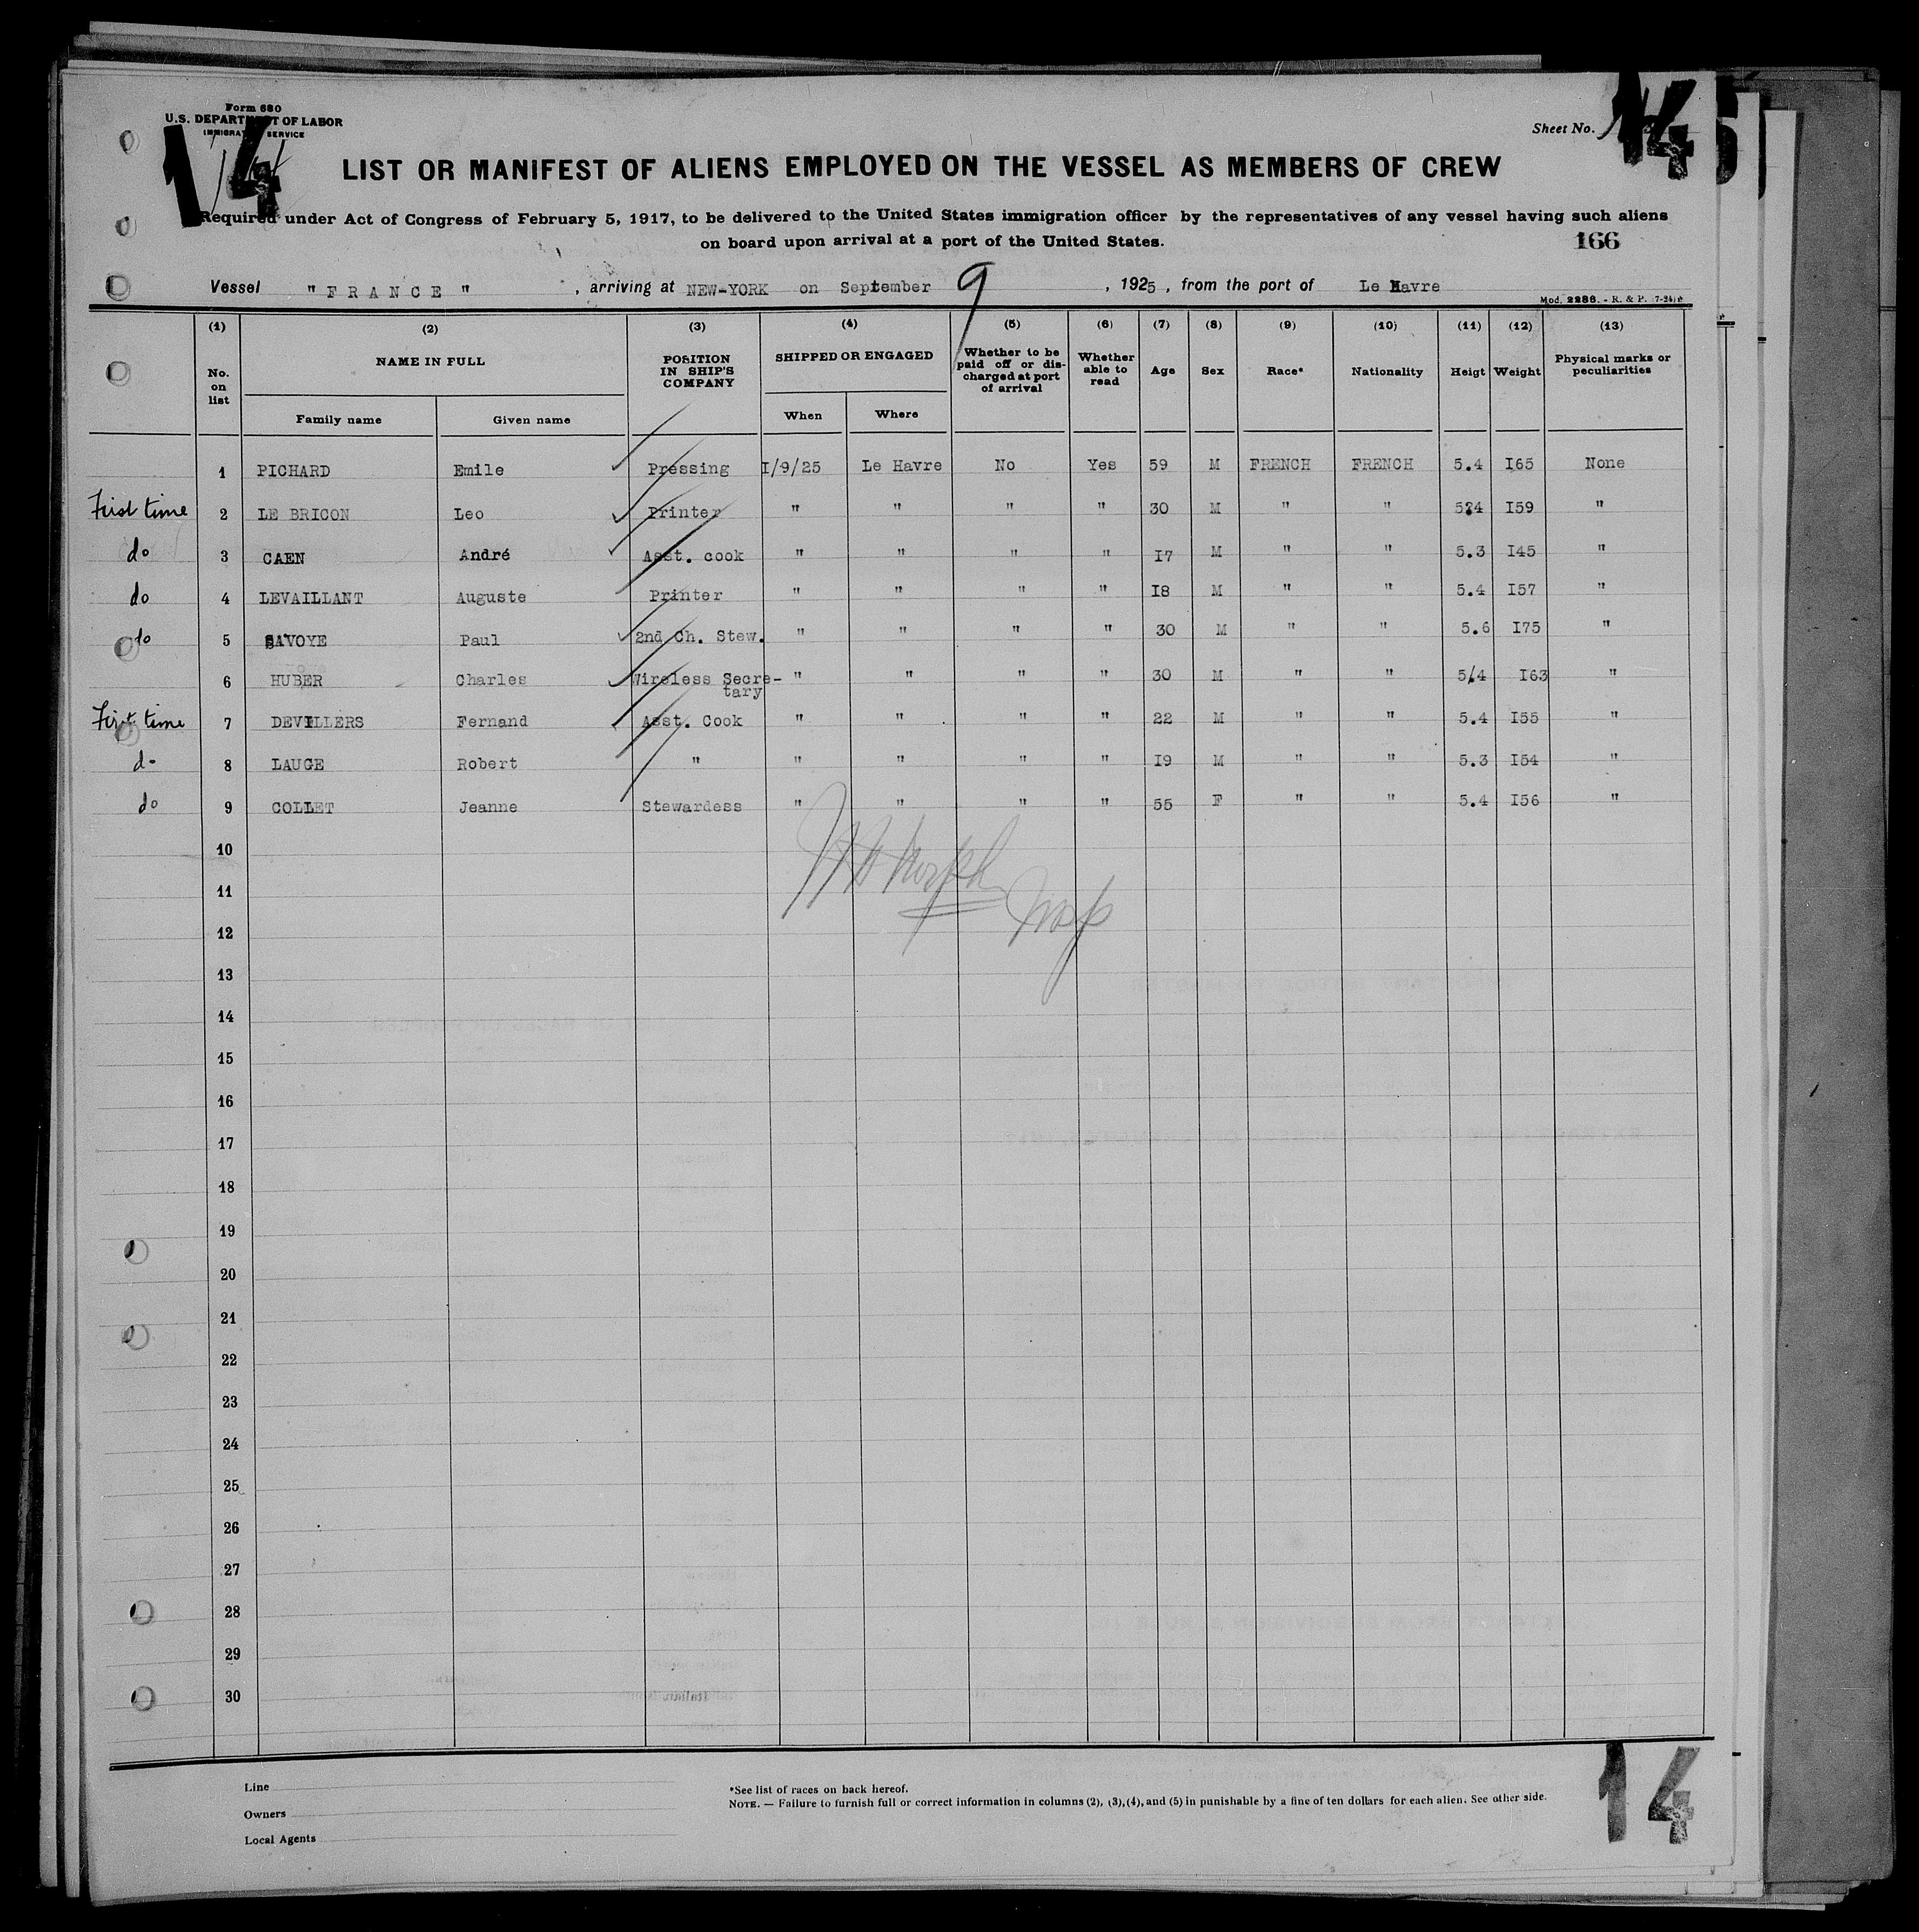 Form 680
U.S. DEPARTMENT OF LABOR
IMMIGRATION SERVICE
14
Sheet No. 14
LIST OR MANIFEST OF ALIENS EMPLOYED ON THE VESSEL AS MEMBERS OF CREW
Required under Act of Congress of February 5, 1917, to be delivered to the United States immigration officer by the representatives of any vessel having such aliens
on board upon arrival at a port of the United States.
166
Vessel "FRANCE", arriving at NEW-YORK on September 9, 1925, from the port of Le Havre
Mod. 2286. - R. & P. (7-24)
(1) (2) (3) (4) (5) (6) (7) (8) (9) (10) (11) (12) (13)
No. on list NAME IN FULL POSITION IN SHIP'S COMPANY SHIPPED OR ENGAGED Whether to be paid off or discharged at port of arrival Whether able to read Age Sex Race* Nationality Heigt Weight Physical marks or peculiarities
Family name Given name When Where
1 PICHARD Emile Pressing I/9/25 Le Havre No Yes 59 M FRENCH FRENCH 5.4 I65 None
First time 2 LE BRICON Leo Printer " " " " 30 M " " 5.4 I59 "
do 3 CAEN André Asst. cook " " " " I7 M " " 5.3 I45 "
do 4 LEVAILLANT Auguste Printer " " " " I8 M " " 5.4 I57 "
do 5 SAVOYE Paul 2nd Ch. Stew. " " " " 30 M " " 5.6 I75 "
6 HUBER Charles Wireless Secre-tary " " " " 30 M " " 5/4 I63 "
First time 7 DEVILLERS Fernand Asst. Cook " " " " 22 M " " 5.4 I55 "
do 8 LAUGE Robert " " " " " I9 M " " 5.3 I54 "
do 9 COLLET Jeanne Stewardess " " " " 55 F " " 5.4 I56 "
10
11
12
13
14
15
16
17
18
19
20
21
22
23
24
25
26
27
28
29
30
Line
Owners
Local Agents
*See list of races on back hereof.
NOTE. — Failure to furnish full or correct information in columns (2), (3), (4), and (5) in punishable by a fine of ten dollars for each alien. See other side.
14